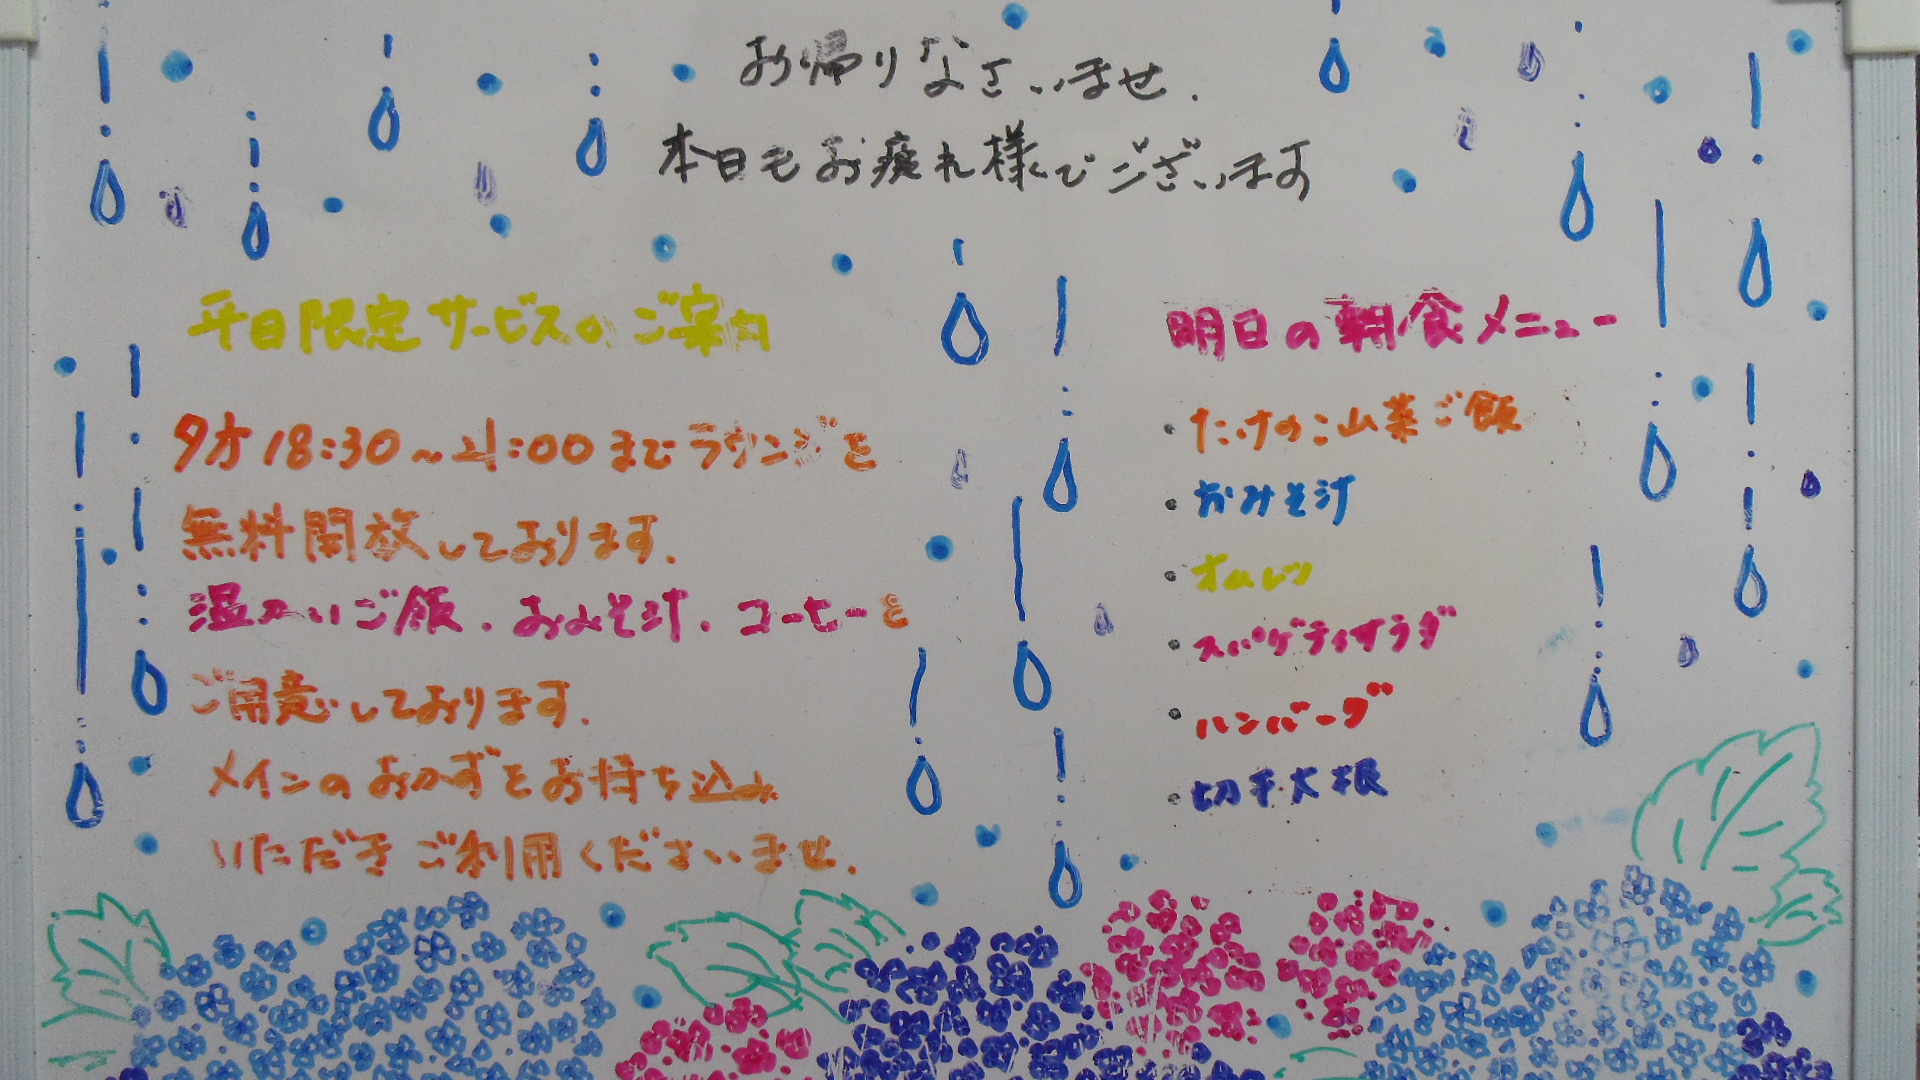 お帰りなさいませ.
本日もお疲れ様でございます
平日限定サービスのご案内
夕方18:30~21:00までラウンジを
無料開放しております.
温かいご飯.おみそ汁.コーヒーを
ご用意しております.
メインのおかずをお持ち込み
いただきご利用くださいませ.
明日の朝食メニュー
・たけのこ山菜ご飯
・おみそ汁
・オムレツ
・スパゲティサラダ
・ハンバーグ
・切干大根